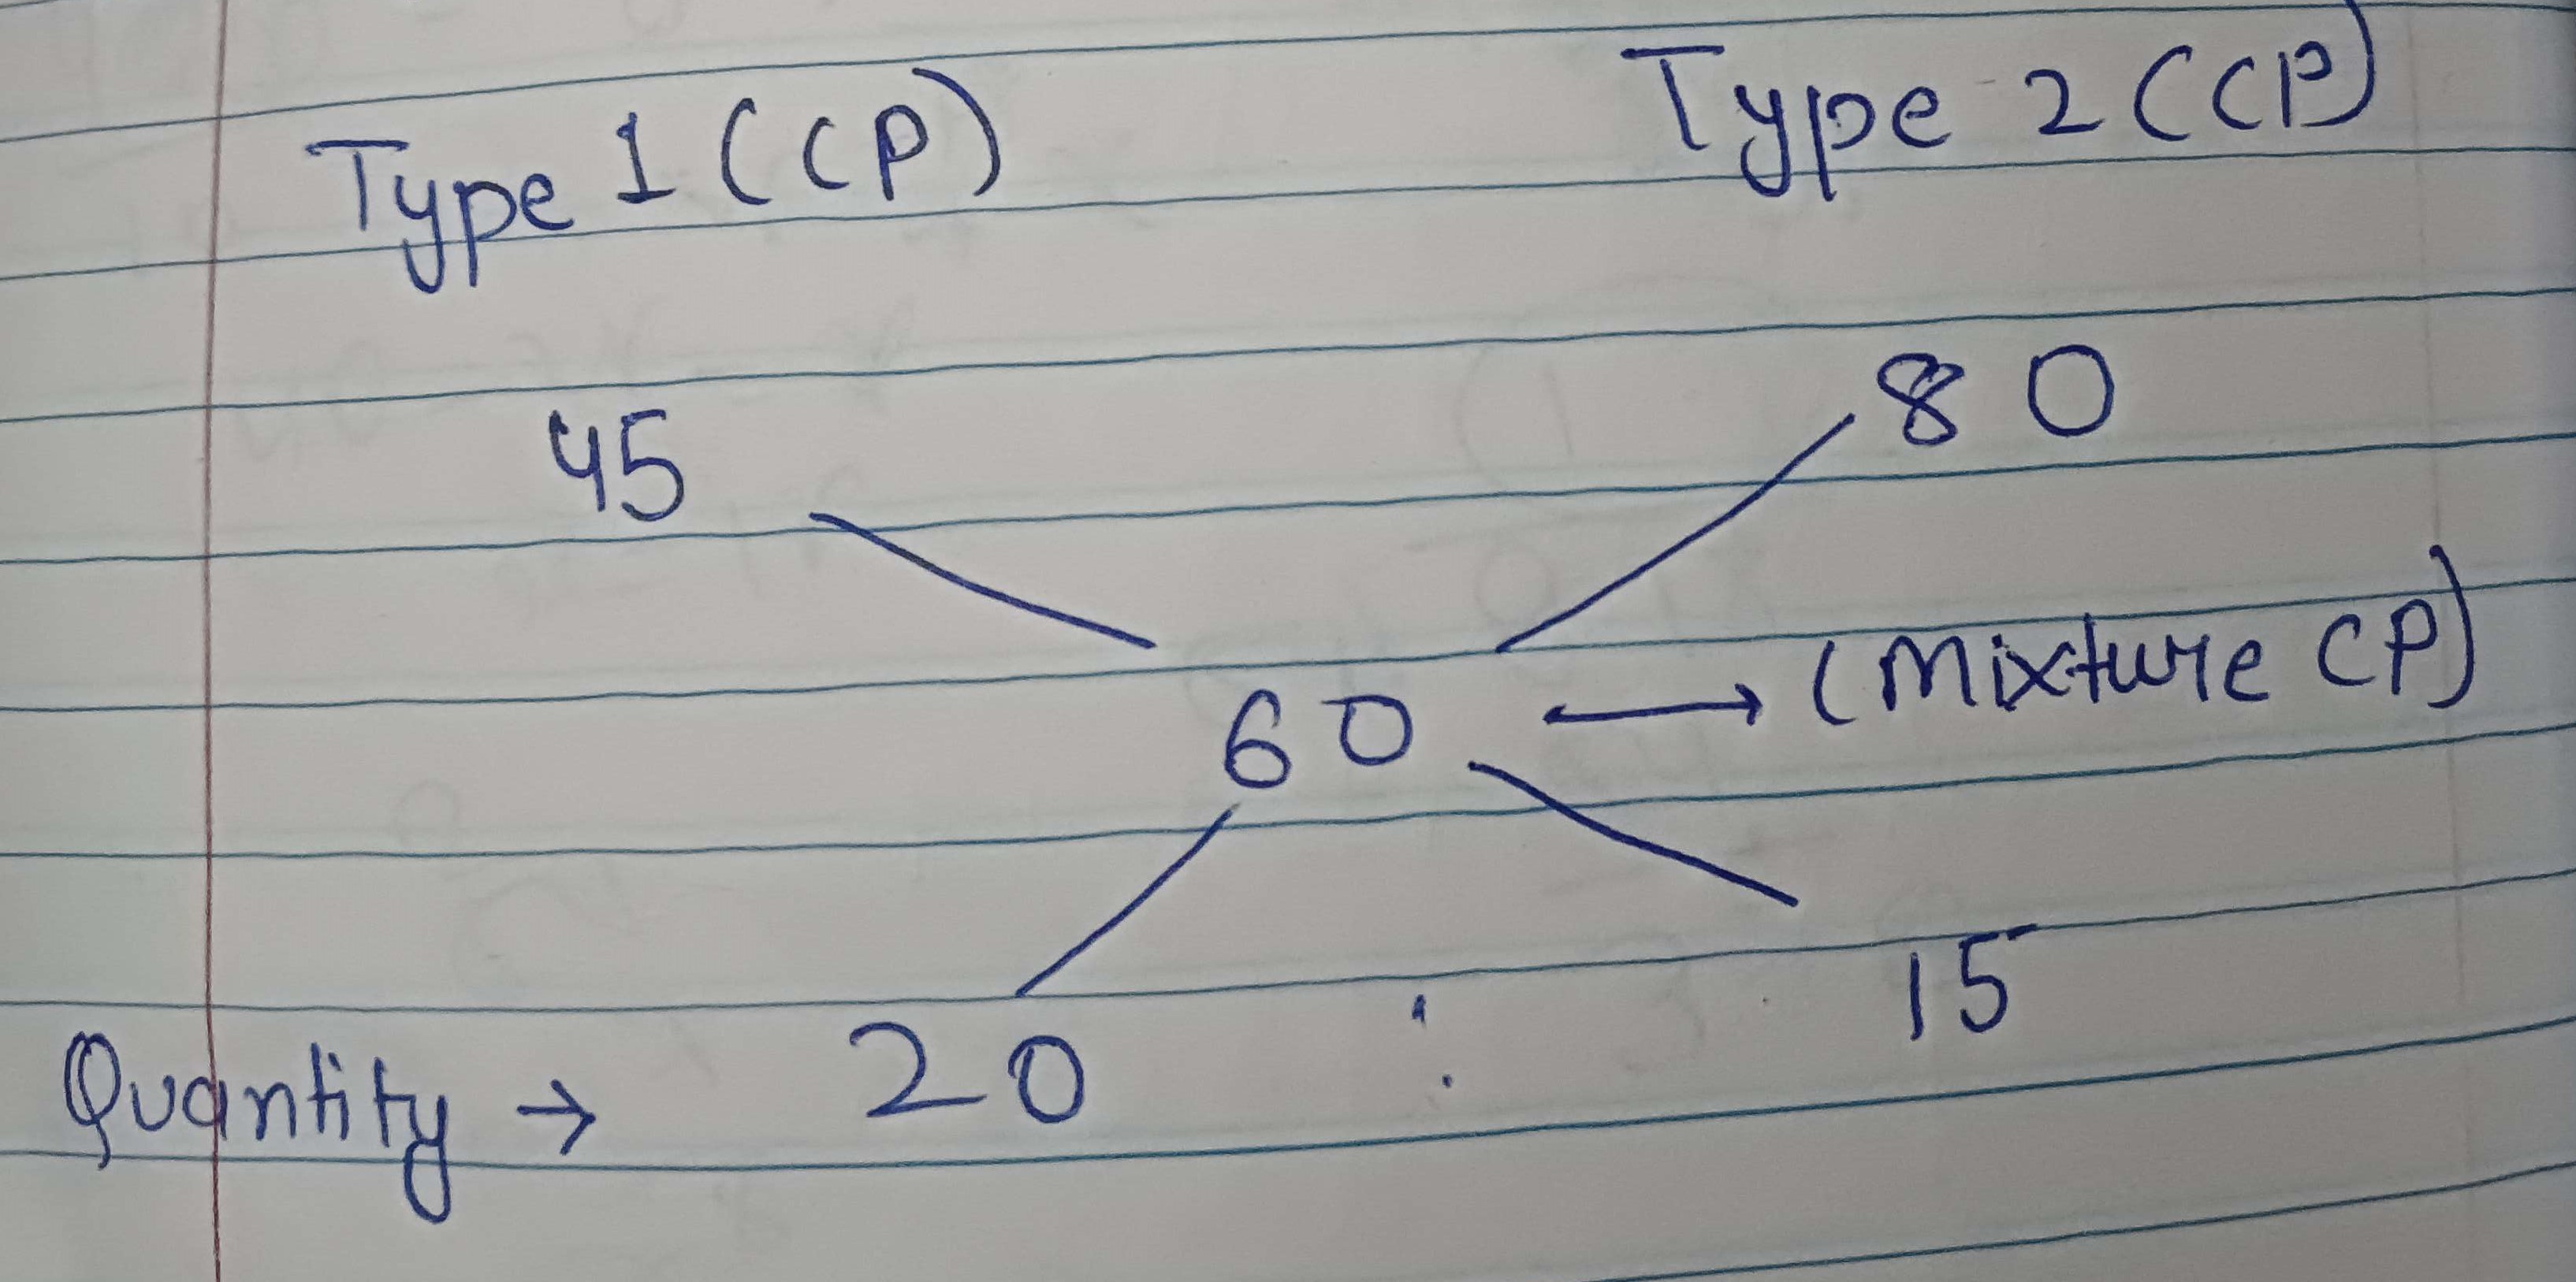 Type 1 (CP) Type 2 (CP)
45 80
60 → (Mixture CP)
Quantity → 20 : 15